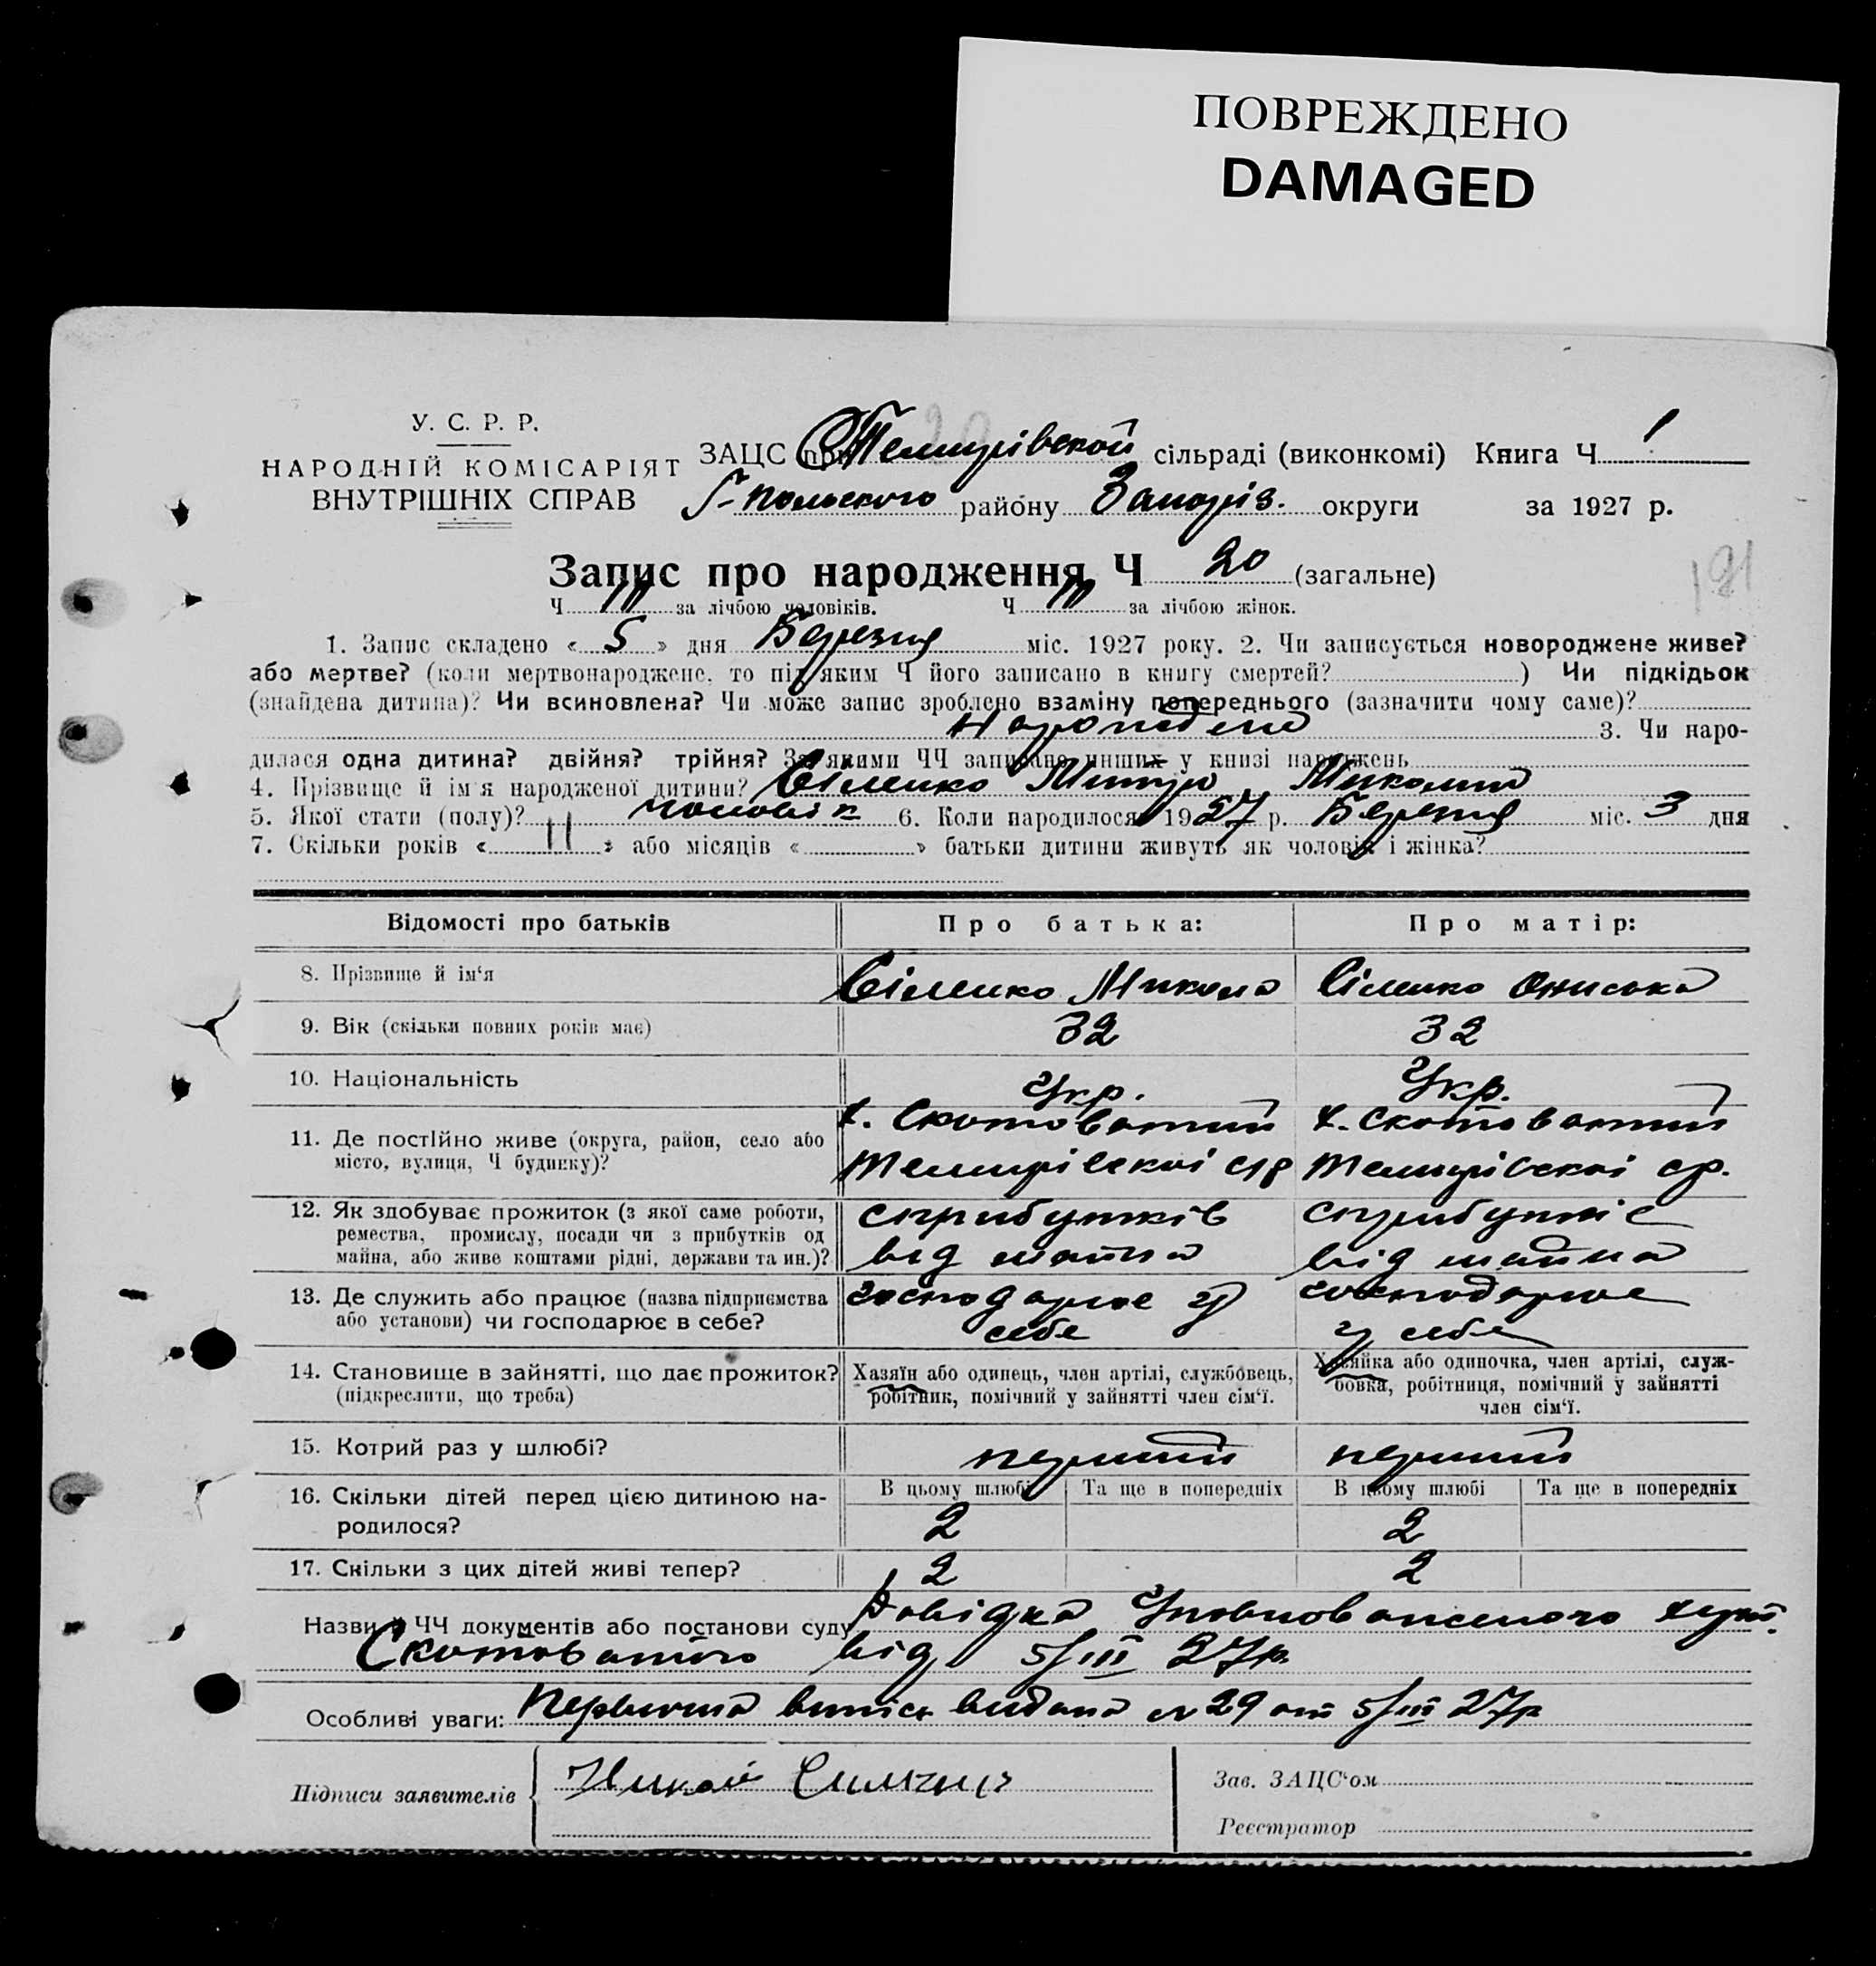 ПОВРЕЖДЕНО
DAMAGED
У. С. Р. Р.
НАРОДНІЙ КОМІСАРІЯТ
ВНУТРІШНІХ СПРАВ
ЗАЦС при Темирівской сільраді (виконкомі) Книга Ч 1
Г-Польского району Запоріз. округи за 1927 р.
Запис про народження Ч 20 (загальне)
191
Ч за лічбою чоловіків. Ч за лічбою жінок.
1. Запис складено « 5 » дня Березня міс. 1927 року. 2. Чи записується новороджене живе?
або мертве? (коли мертвонароджене, то під яким Ч його записано в книгу смертей? ) Чи підкідьок
(знайдена дитина)? Чи всиновлена? Чи може запис зроблено взаміну попереднього (зазначити чому саме)?
3. Чи наро-
дилася одна дитина? двійня? трійня? За якими ЧЧ записано инших у книзі народжень
4. Прізвище й ім'я народженої дитини? Сіменко Митро Миколин
5. Якої стати (полу)? чоловік 6. Коли народилося 1927 р. Березня міс. 3 дня
7. Скільки років « 11 » або місяців « » батьки дитини живуть як чоловік і жінка?
Відомості про батьків Про батька: Про матір:
8. Прізвище й ім'я Сіменко Микола Сіменко Ониська
9. Вік (скільки повних років має) 32 32
10. Національність Укр. Укр.
11. Де постійно живе (округа, район, село або
місто, вулиця, Ч будинку)?
х. Скотоватий
Темирівскоі с/р
х. Скотоватий
Темирівскоі ср.
12. Як здобуває прожиток (з якої саме роботи,
ремества, промислу, посади чи з прибутків од
майна, або живе коштами рідні, держави та ин.)?
сприбутків
від майна
сприбутків
від майна
13. Де служить або працює (назва підприємства
або установи) чи господарює в себе?
господарює у
себе
господарює
у себе
14. Становище в зайнятті, що дає прожиток?
(підкреслити, що треба)
Хазяїн або одинець, член артілі, службовець,
робітник, помічний у зайнятті член сім'ї.
Хазяйка або одиночка, член артілі, служ-
бовка, робітниця, помічний у зайнятті
член сім'ї.
15. Котрий раз у шлюбі? перший перший
16. Скільки дітей перед цією дитиною на-
родилося?
В цьому шлюбі Та ще в попередніх В цьому шлюбі Та ще в попередніх
2 2
17. Скільки з цих дітей живі тепер? 2 2
Назви й ЧЧ документів або постанови суду Довідка Уповноваженого хут.
Скотоватого від 5/III 27р.
Особливі уваги: Первична випісь видана № 29 от 5/III 27р
Підписи заявителів
Зав. ЗАЦС'ом
Реєстратор